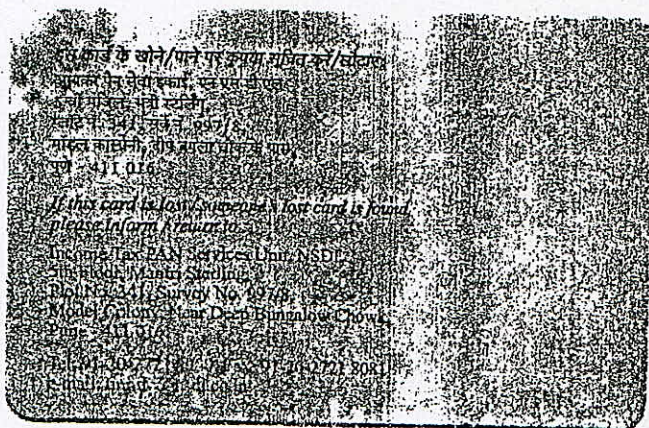 इस कार्ड के खोने/पाने पर कृपया सूचित करें/लौटाएं
आयकर पैन सेवा इकाई,
मंजिल, मंत्री स्टर्लिंग,
प्लॉट नं. 341, सर्वे नं. 997/8,
माडल कालोनी, दीप बंगला चौक के पास,
पुणे - 411 016
If this card is lost / someone's lost card is found,
please inform / return to
Income Tax PAN Services Unit, NSDL
5th floor, Mantri Sterling,
Plot No. 341, Survey No. 997/8,
Model Colony, Near Deep Bungalow Chowk,
Pune - 411 016
Tel: 91-20-2721 8081
e-mail: